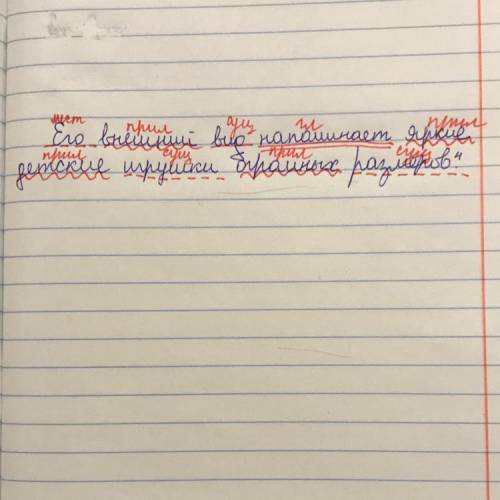 мест прил сущ гл прил
Его внешний вид напоминает яркие
прил сущ прил сущ
детские игрушки огромных размеров"